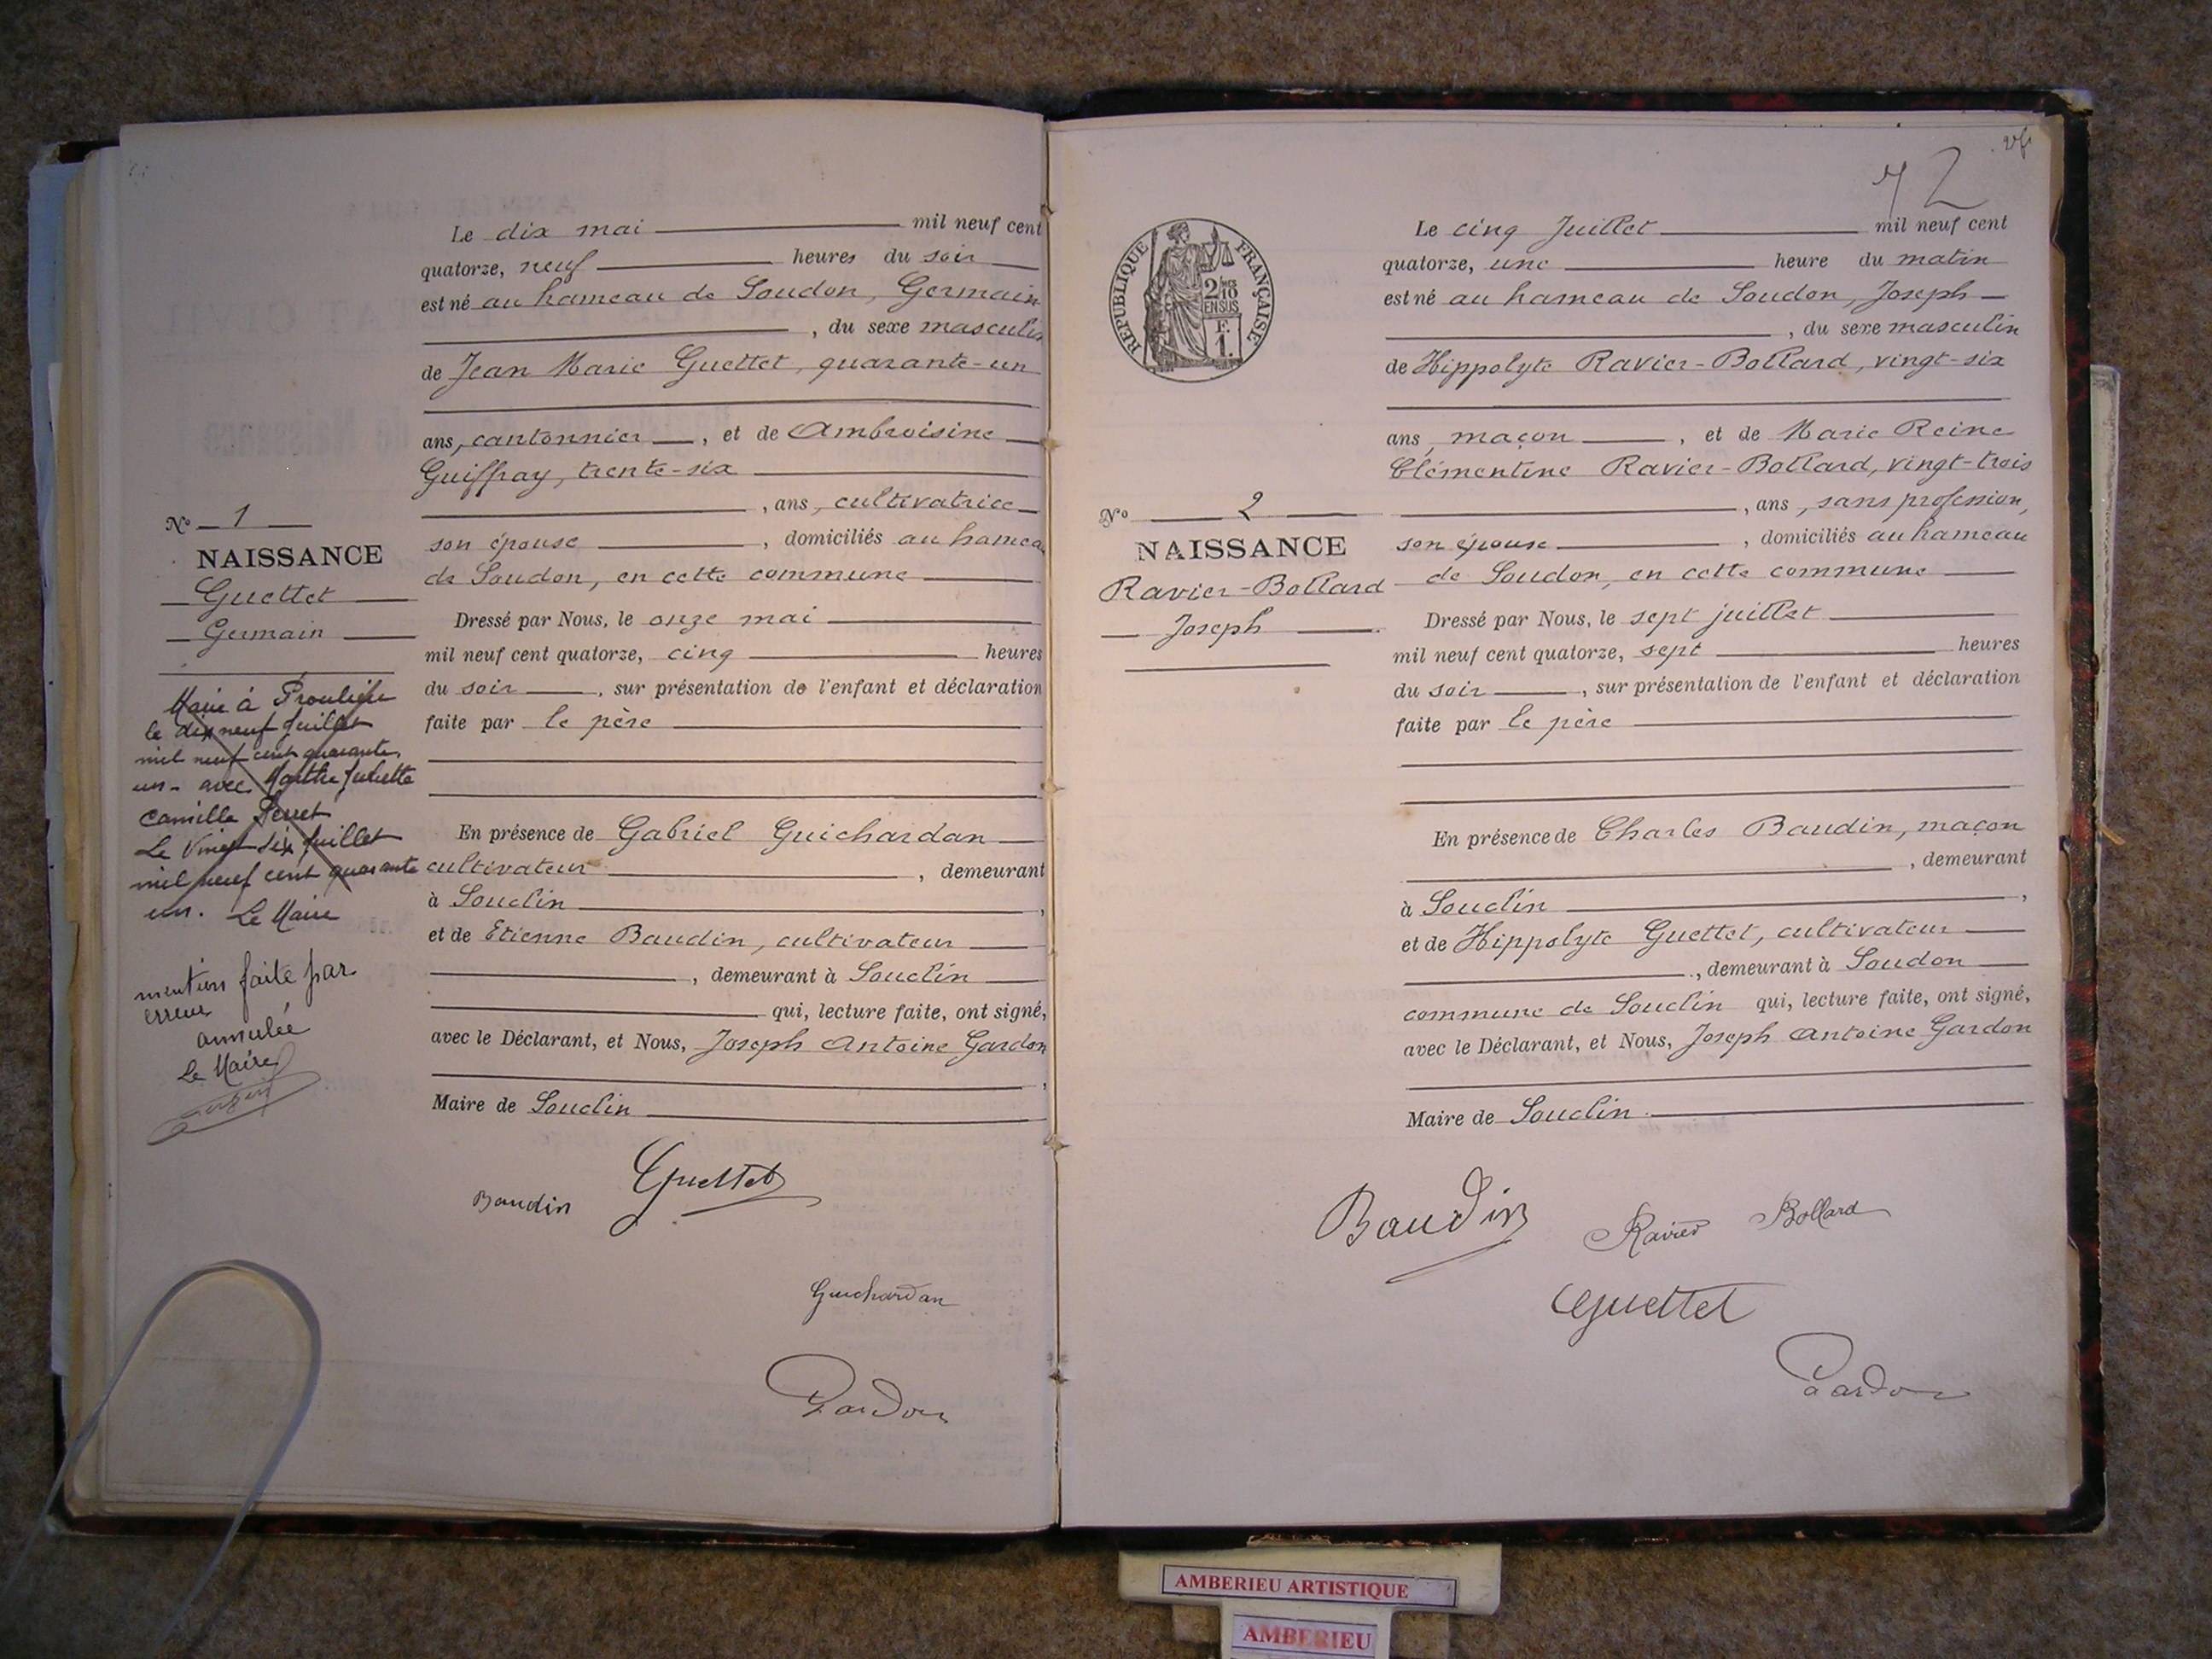 Le dix mai mil neuf cent
quatorze, neuf heures du soir
est né au hameau de Soudon, Germain
, du sexe masculin
de Jean Marie Guettet, quarante-un
ans, cantonnier, et de Ambroisine
Guiffray, trente-six
, ans, cultivatrice
son épouse, domiciliés au hameau
de Soudon, en cette commune
Dressé par Nous, le onze mai
mil neuf cent quatorze, cinq heures
du soir, sur présentation de l'enfant et déclaration
faite par le père
En présence de Gabriel Guichardan
cultivateur, demeurant
à Souclin,
et de Etienne Baudin, cultivateur
, demeurant à Souclin
qui, lecture faite, ont signé,
avec le Déclarant, et Nous, Joseph Antoine Gardon
,
Maire de Souclin
Guettet
Baudin
Guichardan
Gardon
No 1
NAISSANCE
Guettet
Germain
Marié à
le dix neuf Juillet
mil neuf cent quarante
un - avec Marthe Juliette
Camille Perret
Le Vingt six Juillet
mil neuf cent quarante
un. Le Maire
mention faite par
erreur
annulée
Le Maire
72
REPUBLIQUE FRANÇAISE
2/10 EN SUS
F. 1.
Le cinq Juillet mil neuf cent
quatorze, une heure du matin
est né au hameau de Soudon, Joseph
, du sexe masculin
de Hippolyte Ravier-Bollard, vingt-six
ans, maçon, et de Marie Reine
Clémentine Ravier-Bollard, vingt-trois
, ans, sans profession,
son épouse, domiciliés au hameau
de Soudon, en cette commune
Dressé par Nous, le sept juillet
mil neuf cent quatorze, sept heures
du soir, sur présentation de l'enfant et déclaration
faite par le père
En présence de Charles Baudin, maçon
, demeurant
à Souclin,
et de Hippolyte Guettet, cultivateur
, demeurant à Soudon
commune de Souclin qui, lecture faite, ont signé,
avec le Déclarant, et Nous, Joseph Antoine Gardon
Maire de Souclin
No 2
NAISSANCE
Ravier-Bollard
Joseph
Baudin
Ravier Bollard
Guettet
Gardon
AMBERIEU ARTISTIQUE
AMBERIEU